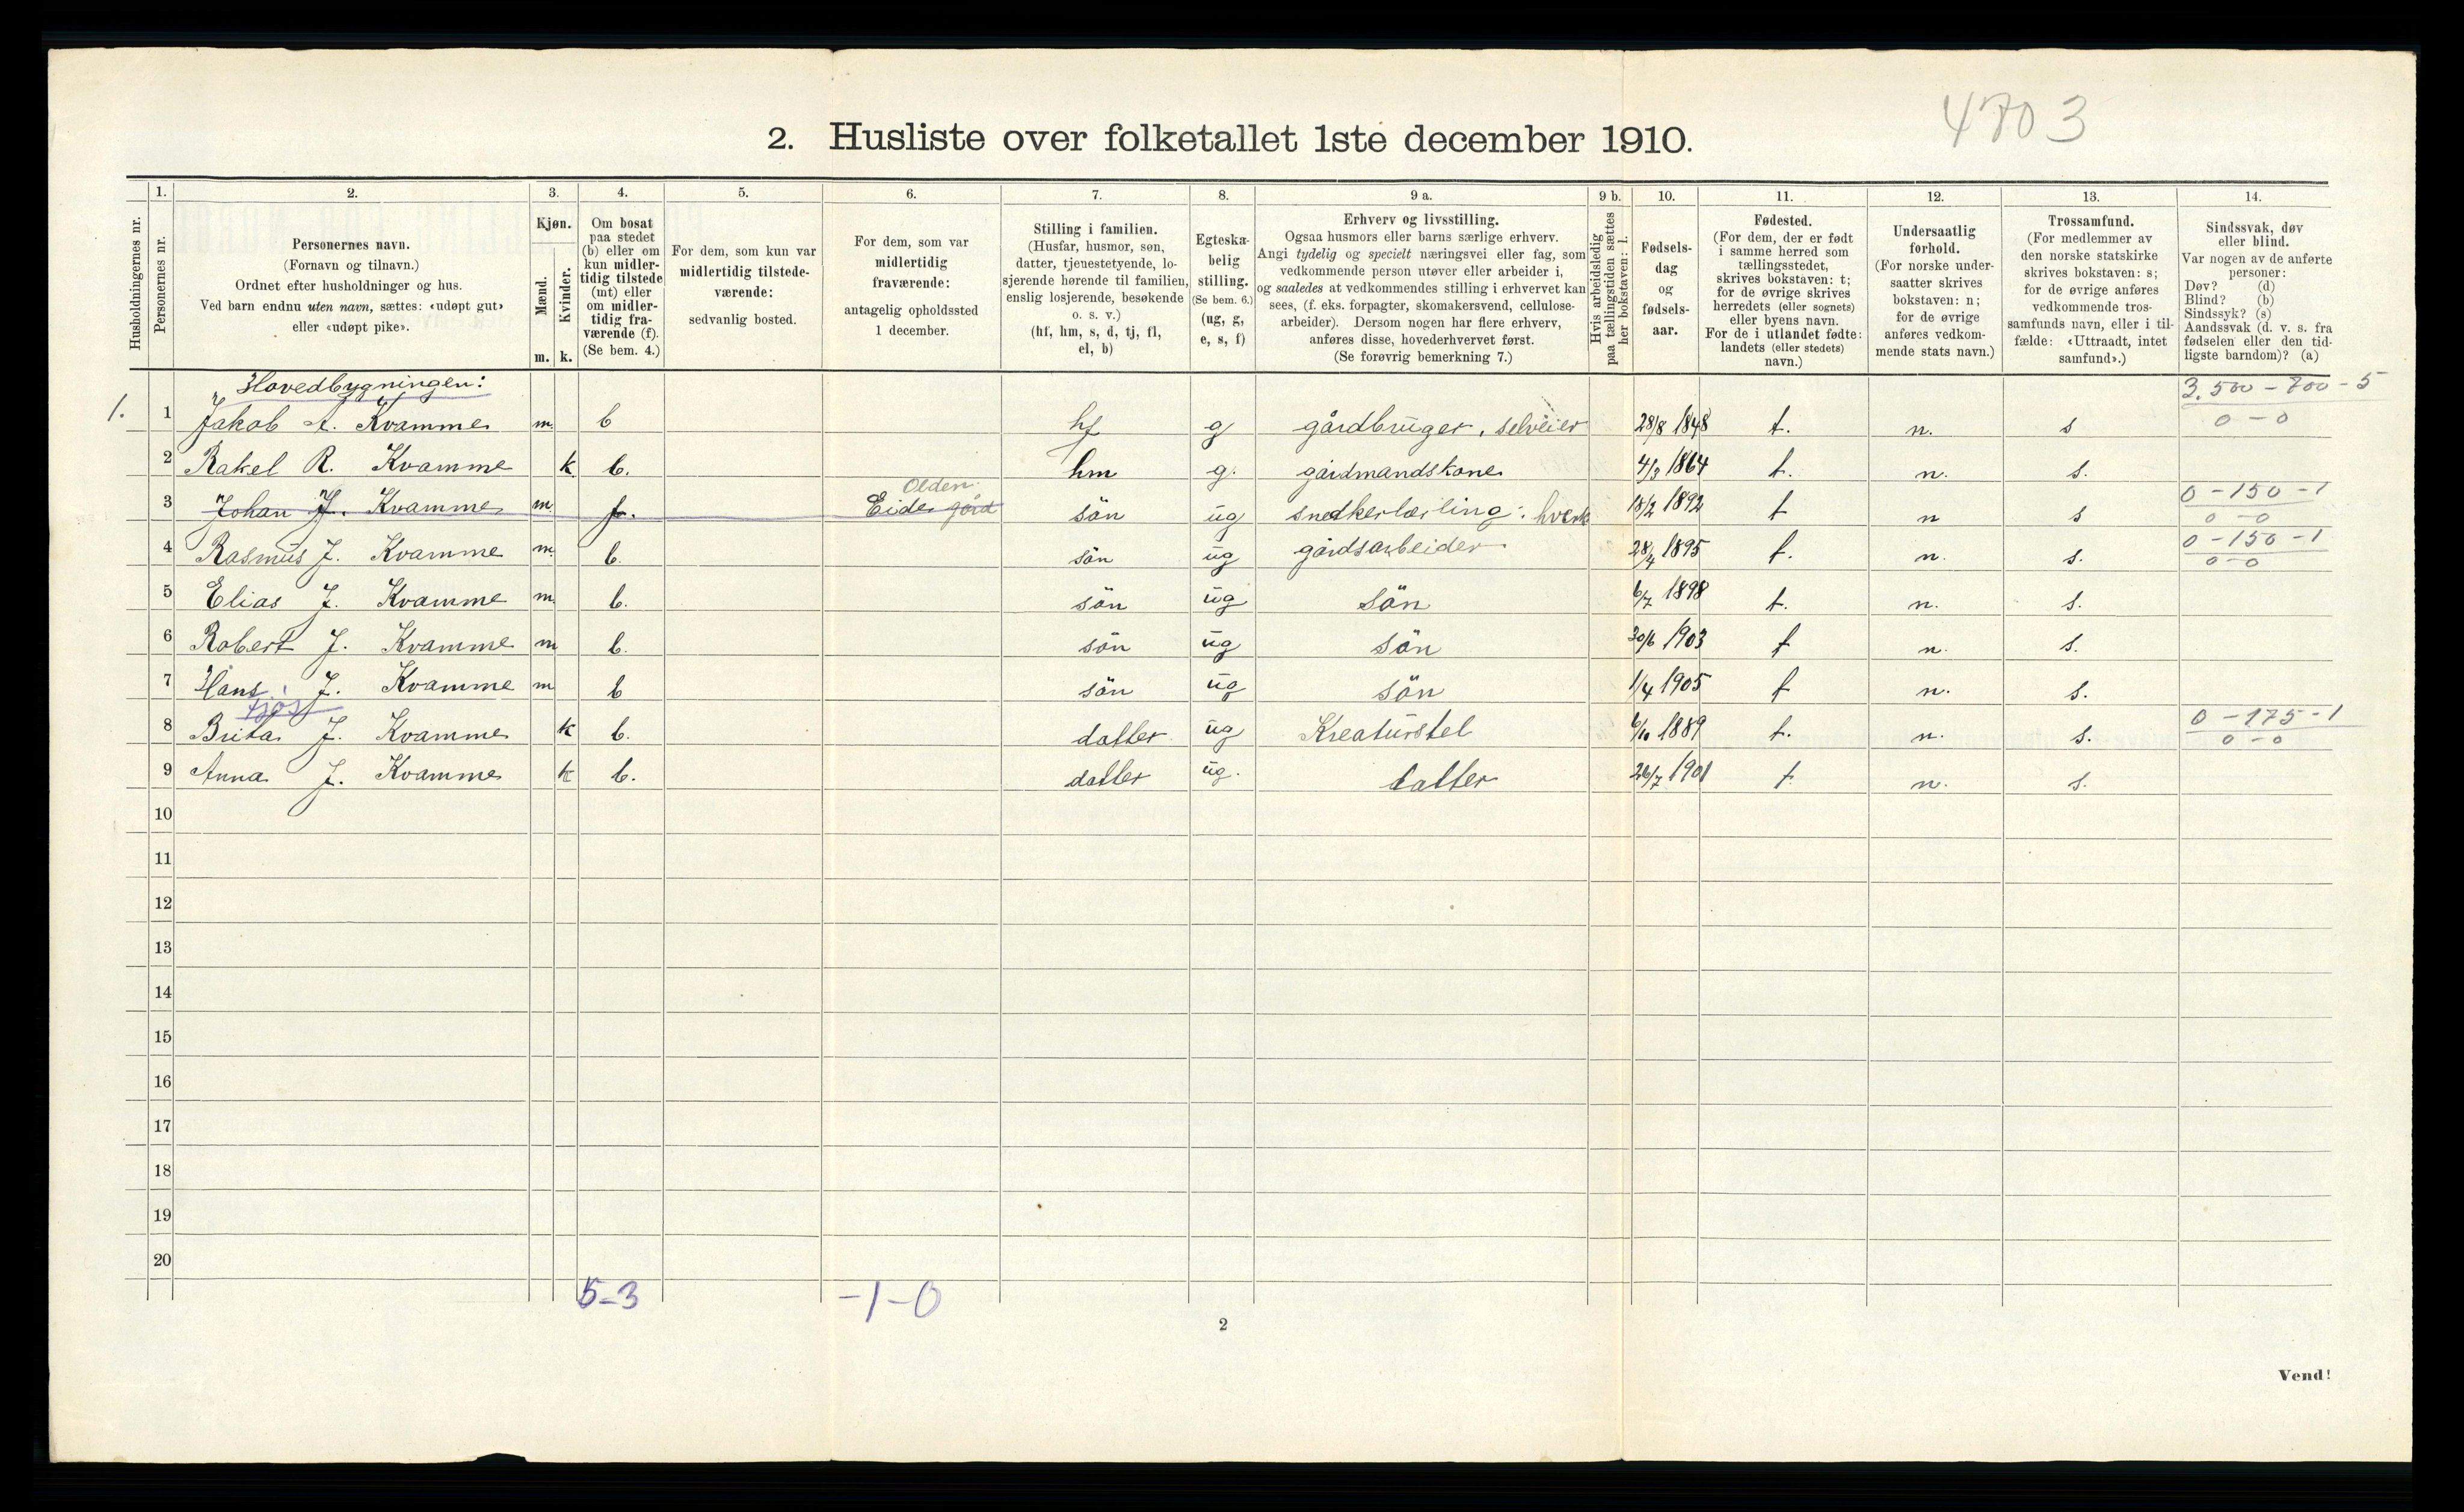 4703
2. Husliste over folketallet 1ste december 1910.
Husholdningernes nr.
1.
Personernes nr.
2.
Personernes navn.
(Fornavn og tilnavn.)
Ordnet efter husholdninger og hus.
Ved barn endnu uten navn, sættes: «udøpt gut»
eller «udøpt pike».
3.
Kjøn.
Mænd.
Kvinder.
m. k.
4.
Om bosat
paa stedet
(b) eller om
kun midler-
tidig tilstede
(mt) eller
om midler-
tidig fra-
værende (f).
(Se bem. 4.)
5.
For dem, som kun var
midlertidig tilstede-
værende:
sedvanlig bosted.
6.
For dem, som var
midlertidig
fraværende:
antagelig opholdssted
1 december.
7.
Stilling i familien.
(Husfar, husmor, søn,
datter, tjenestetyende, lo-
sjerende hørende til familien,
enslig losjerende, besøkende
o. s. v.)
(hf, hm, s, d, tj, fl,
el, b)
8.
Egteska-
belig
stilling.
(Se bem. 6.)
(ug, g,
e, s, f)
9 a.
Erhverv og livsstilling.
Ogsaa husmors eller barns særlige erhverv.
Angi tydelig og specielt næringsvei eller fag, som
vedkommende person utøver eller arbeider i,
og saaledes at vedkommendes stilling i erhvervet kan
sees, (f. eks. forpagter, skomakersvend, cellulose-
arbeider). Dersom nogen har flere erhverv,
anføres disse, hovederhvervet først.
(Se forøvrig bemerkning 7.)
9 b.
Hvis arbeidsledig
paa tællingstiden sættes
her bokstaven: l.
10.
Fødsels-
dag
og
fødsels-
aar.
11.
Fødested.
(For dem, der er født
i samme herred som
tællingsstedet,
skrives bokstaven: t;
for de øvrige skrives
herredets (eller sognets)
eller byens navn.
For de i utlandet fødte:
landets (eller stedets)
navn.)
12.
Undersaatlig
forhold.
(For norske under-
saatter skrives
bokstaven: n;
for de øvrige
anføres vedkom-
mende stats navn.)
13.
Trossamfund.
(For medlemmer av
den norske statskirke
skrives bokstaven: s;
for de øvrige anføres
vedkommende tros-
samfunds navn, eller i til-
fælde: «Uttraadt, intet
samfund».)
14.
Sindssvak, døv
eller blind.
Var nogen av de anførte
personer:
Døv? (d)
Blind? (b)
Sindssyk? (s)
Aandssvak (d. v. s. fra
fødselen eller den tid-
ligste barndom)? (a)
Hovedbygningen:
3.500 - 700 - 5
1. 1 Jakob A. Kvamme m. b hf g gårdbruger, selveier 28/8 1848 t. n. s 0 - 0
2 Rakel R. Kvamme k b. hm g. gårdmandskone 4/3 1864 t. n. s.
Olden 0 - 150 - 1
3 Johan J. Kvamme m. f. Eide gård sön ug snedkerlærling: hverk 18/2 1892 t n s 0 - 0
0 - 150 - 1
4 Rasmus J. Kvamme m. b. sön ug gårdsarbeider 28/4 1895 t. n. s. 0 - 0
5 Elias J. Kvamme m. b. sön ug sön 6/7 1898 t. n. s.
6 Robert J. Kvamme m b. sön ug sön 30/6 1903 t n. s.
7 Hans J. Kvamme m b sön ug sön 1/4 1905 t n. s.
0 - 175 - 1
8 Brita J. Kvamme k b. datter ug Kreaturstel 6/10 1889 t. n. s. 0 - 0
9 Anna J. Kvamme k b. datter ug. datter 26/7 1901 t n. s.
10
11
12
13
14
15
16
17
18
19
20
5-3 -1-0
2
Vend!